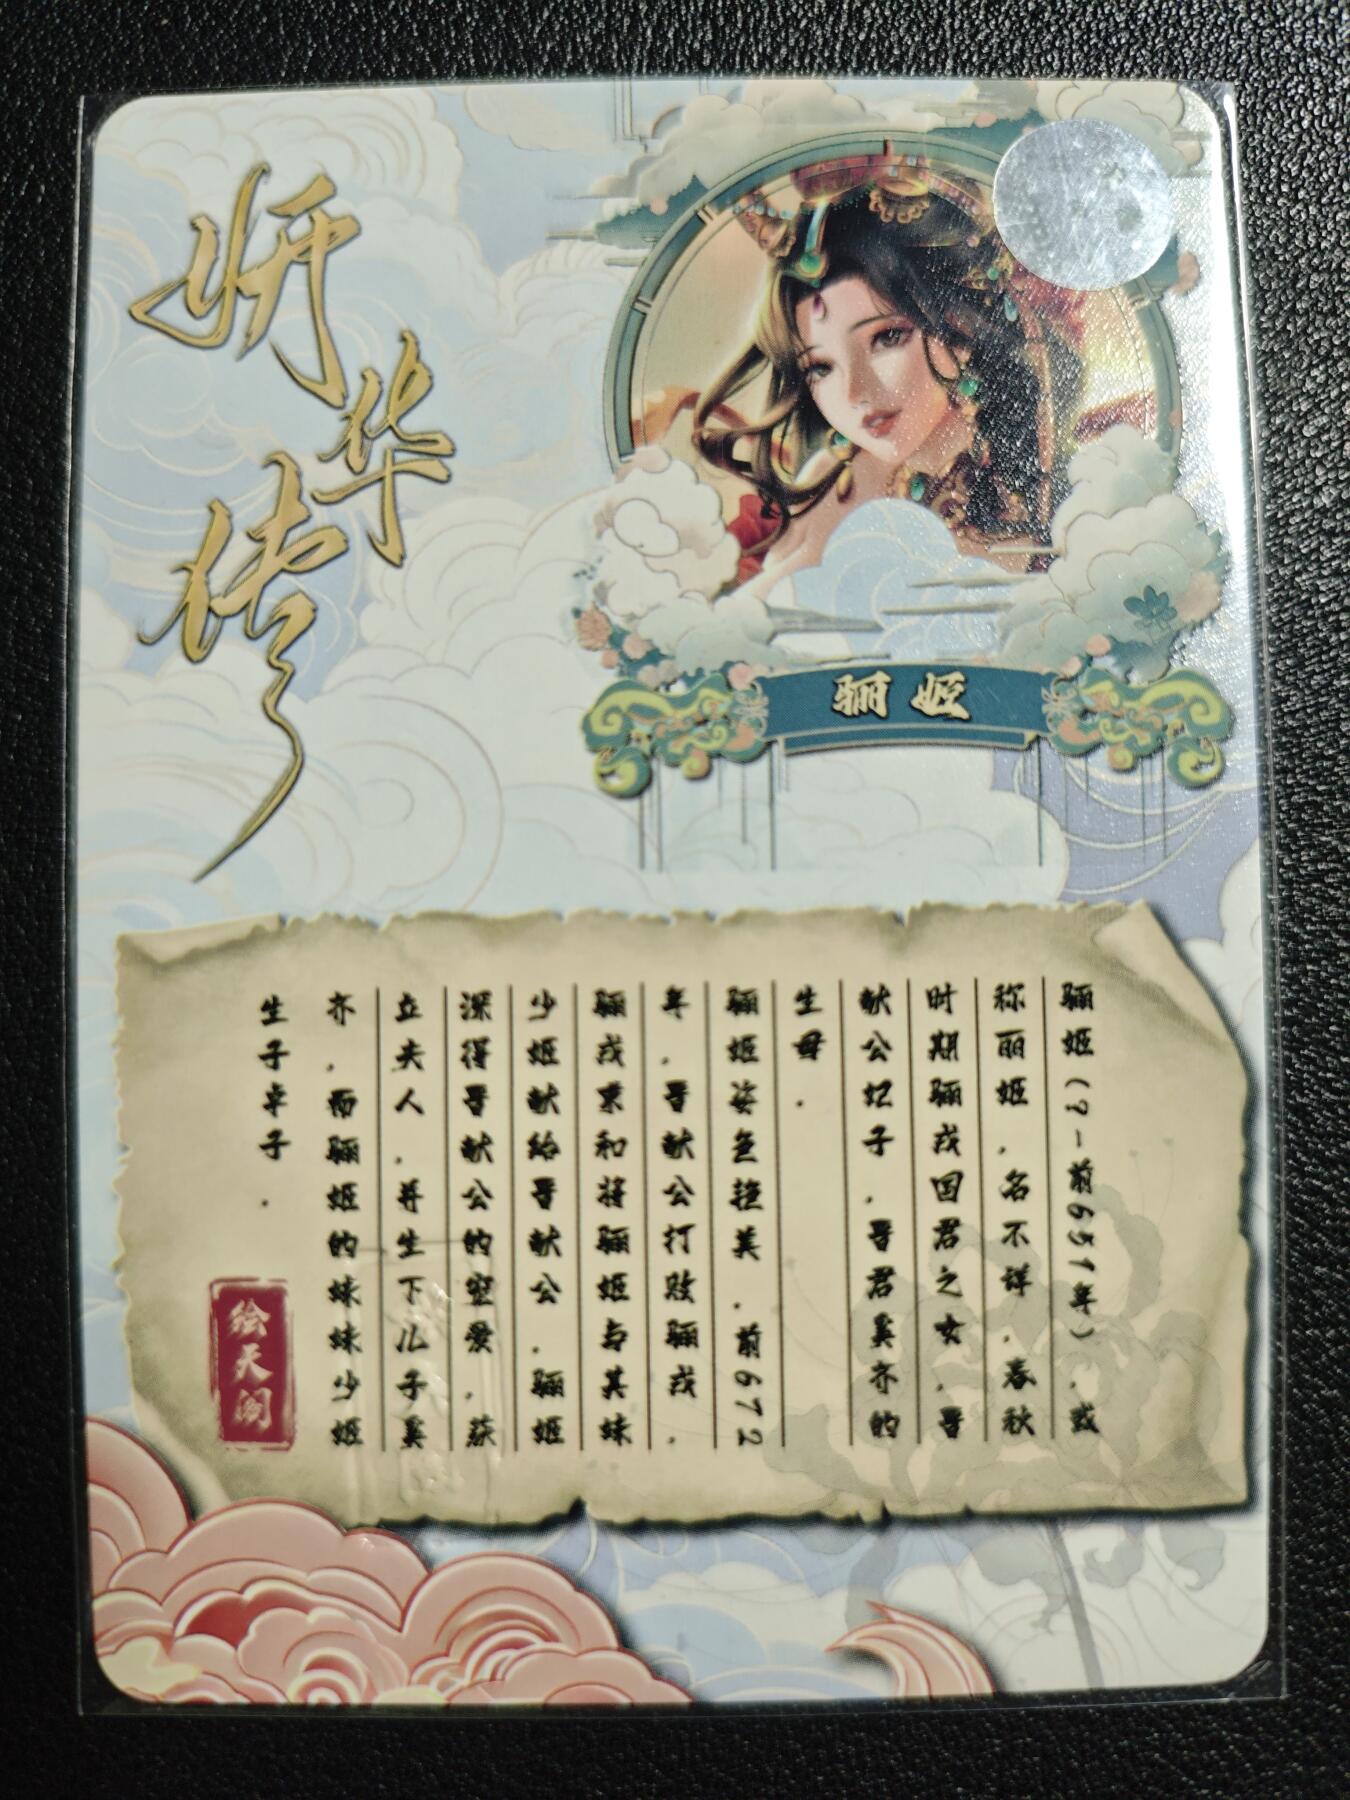 妍华传
骊姬
骊姬(?-前651年),或
称丽姬,名不详,春秋
时期骊戎国君之女,晋
献公妃子,晋君奚齐的
生母.
骊姬姿色艳美,前672
年,晋献公打败骊戎,
骊戎求和将骊姬与其妹
少姬献给晋献公,骊姬
深得晋献公的宠爱,获
立夫人,并生下儿子奚
齐,而骊姬的妹妹少姬
生子卓子.
绘天阁